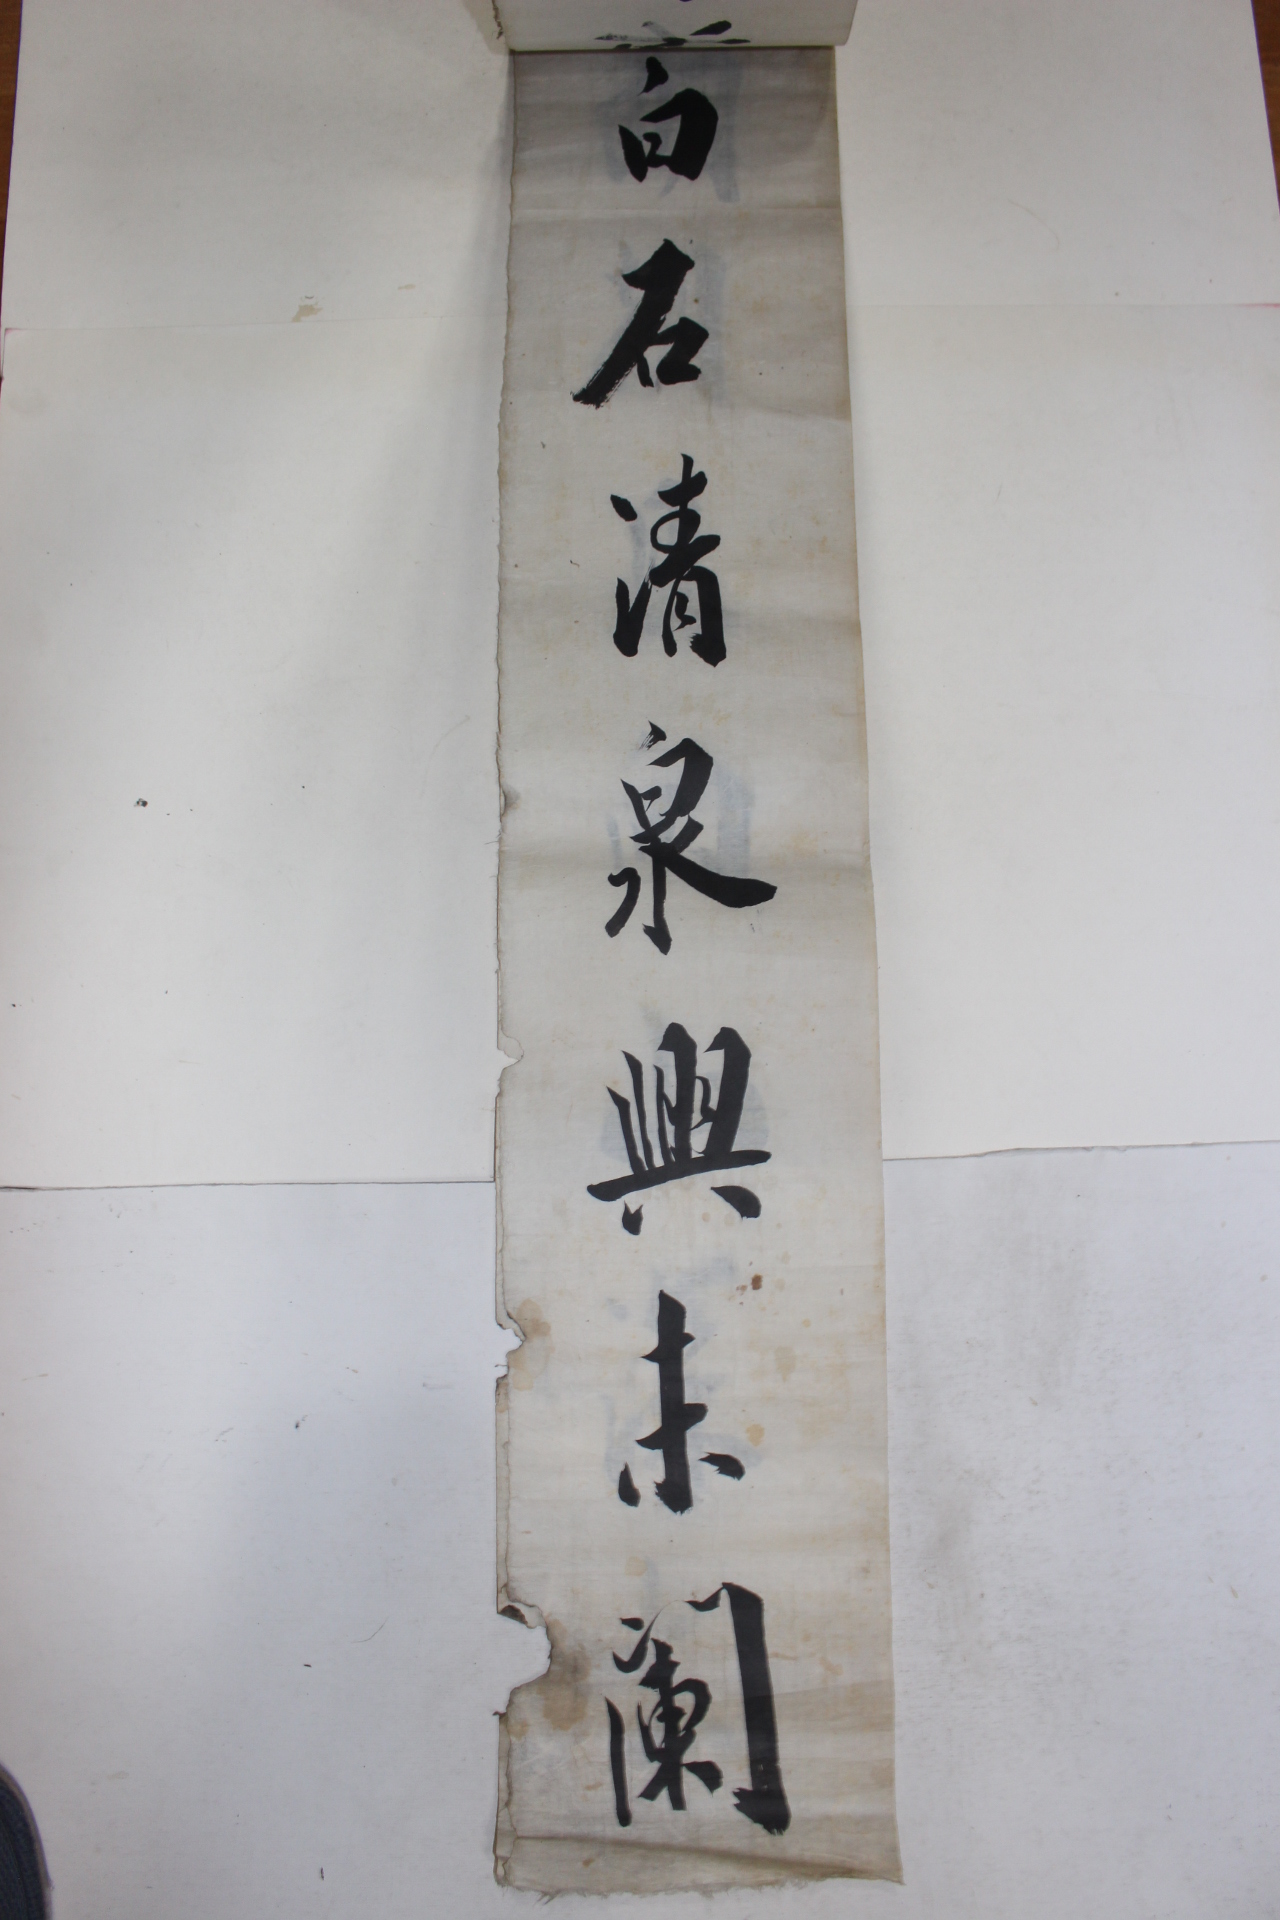 白石清泉興未闌